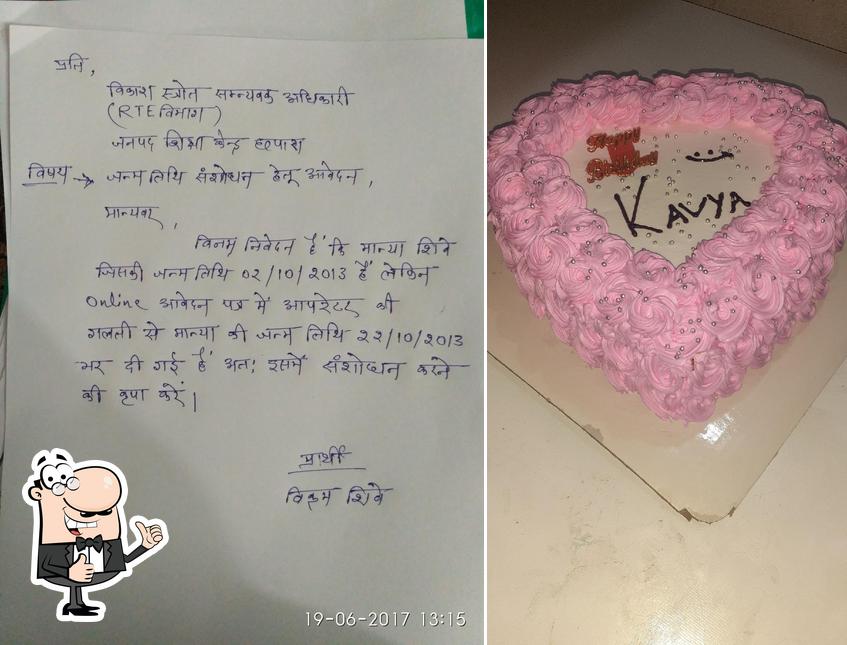 प्रति,
विकास स्त्रोत समन्यवक अधिकारी
(RTE विभाग)
जनपद शिक्षा केन्द्र
विषय → जन्म तिथि संशोधन हेतू आवेदन,
मान्यवर,
विनम्र निवेदन हैं कि मान्या शिवे
जिसकी जन्म तिथि 02/10/2013 हैं लेकिन
Online आवेदन पत्र में आपरेटर की
गलती से मान्या की जन्म तिथि 22/10/2013
भर दी गई हैं अतः इसमें संशोधन करने
की कृपा करें।
प्रार्थी
विक्रम शिवे
19-06-2017 13:15
Happy
Birthday
KAVYA